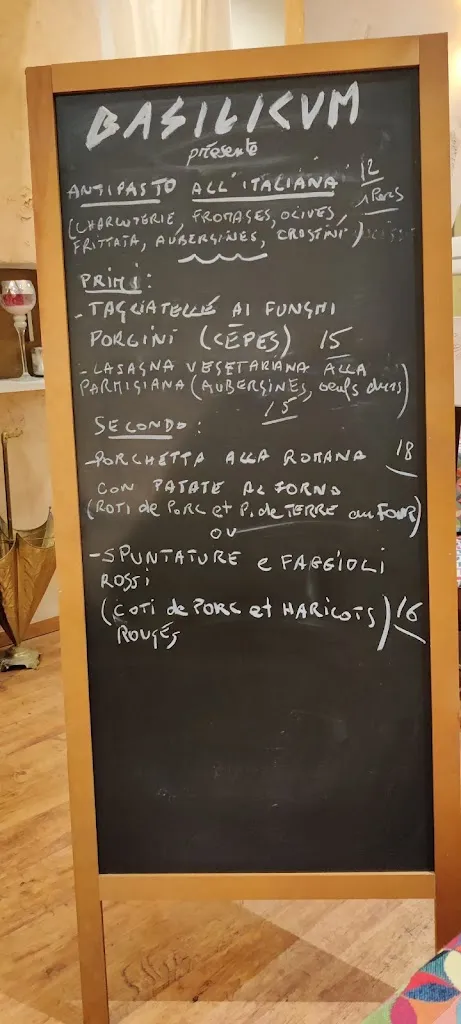 BASILICUM
presente
ANTIPASTO ALL'ITALIANA 12
1 PERS
(CHARCUTERIE, FROMAGES, OLIVES,
FRITTATA, AUBERGINES, CROSTINI)
PRIMI:
- TAGLIATELLE AI FUNGHI
PORCINI (CÈPES) 15
- LASAGNA VEGETARIANA ALLA
PARMIGIANA (AUBERGINES, oeufs durs)
15
SECONDO:
- PORCHETTA ALLA ROMANA 18
CON PATATE AL FORNO
(ROTI de PORC et P. de TERRE au FOUR)
OU
- SPUNTATURE e FAGGIOLI
ROSSI
(COTI de PORC et HARICOTS) 16
ROUGES